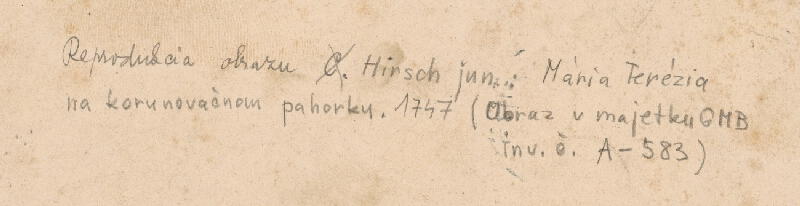 Reprodukcia obrazu C. Hirsch jun.: Mária Terézia
na korunovačnom pahorku. 1747 (Obraz v majetku GMB
inv. č. A-583)